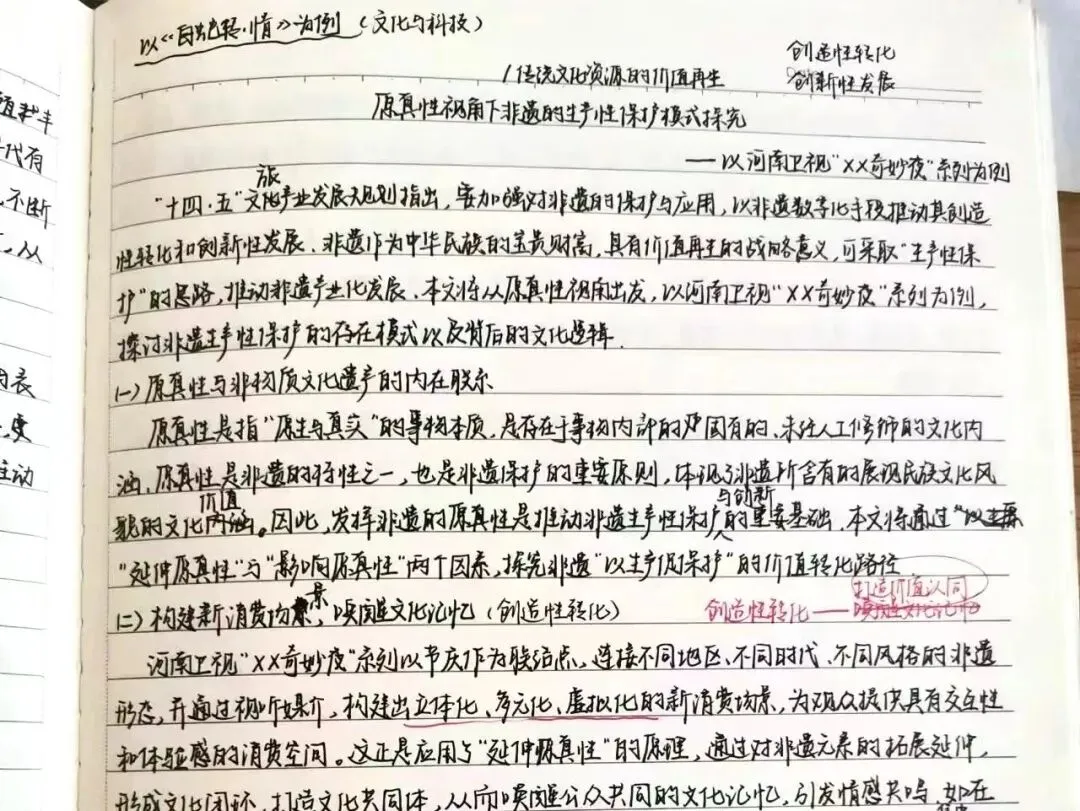 植根丰
代有
不断
从
的表
更
主动
以《只此青绿·情》为例（文化与科技）
创造性转化
/传统文化资源的价值再生 创新性发展
原真性视角下非遗的生产性保护模式探究
——以河南卫视“XX奇妙夜”系列为例
旅
“十四·五”文化产业发展规划指出，要加强对非遗的保护与应用，以非遗数字化手段推动其创造
性转化和创新性发展．非遗作为中华民族的宝贵财富，具有价值再生的战略意义，可采取“生产性保
护”的思路，推动非遗产业化发展．本文将从原真性视角出发，以河南卫视“XX奇妙夜”系列为例，
探讨非遗生产性保护的存在模式以及背后的文化逻辑．
(一)原真性与非物质文化遗产的内在联系
原真性是指“原生与真实”的事物本质，是存在于事物内部的固有的、未经人工修饰的文化内
涵．原真性是非遗的特性之一，也是非遗保护的重要原则，体现了非遗所含有的展现民族文化风
价值 与创新
貌的文化内涵。因此，发挥非遗的原真性是推动非遗生产性保护的重要基础．本文将通过
“延伸原真性”与“影响原真性”两个因素，探究非遗“以生产促保护”的价值转化路径
打造价值认同
(二)构建新消费场景，唤醒文化记忆（创造性转化） 创造性转化——唤醒文化记忆
河南卫视“XX奇妙夜”系列以节庆作为联结点，连接不同地区、不同时代、不同风格的非遗
形态，并通过视听媒介，构建出立体化、多元化、虚拟化的新消费场景，为观众提供具有交互性
和体验感的消费空间。这正是应用与“延伸原真性”的原理，通过对非遗元素的拓展延伸，
形成文化闭环，打造文化共同体，从而唤醒公众共同的文化记忆，引发情感共鸣．如在